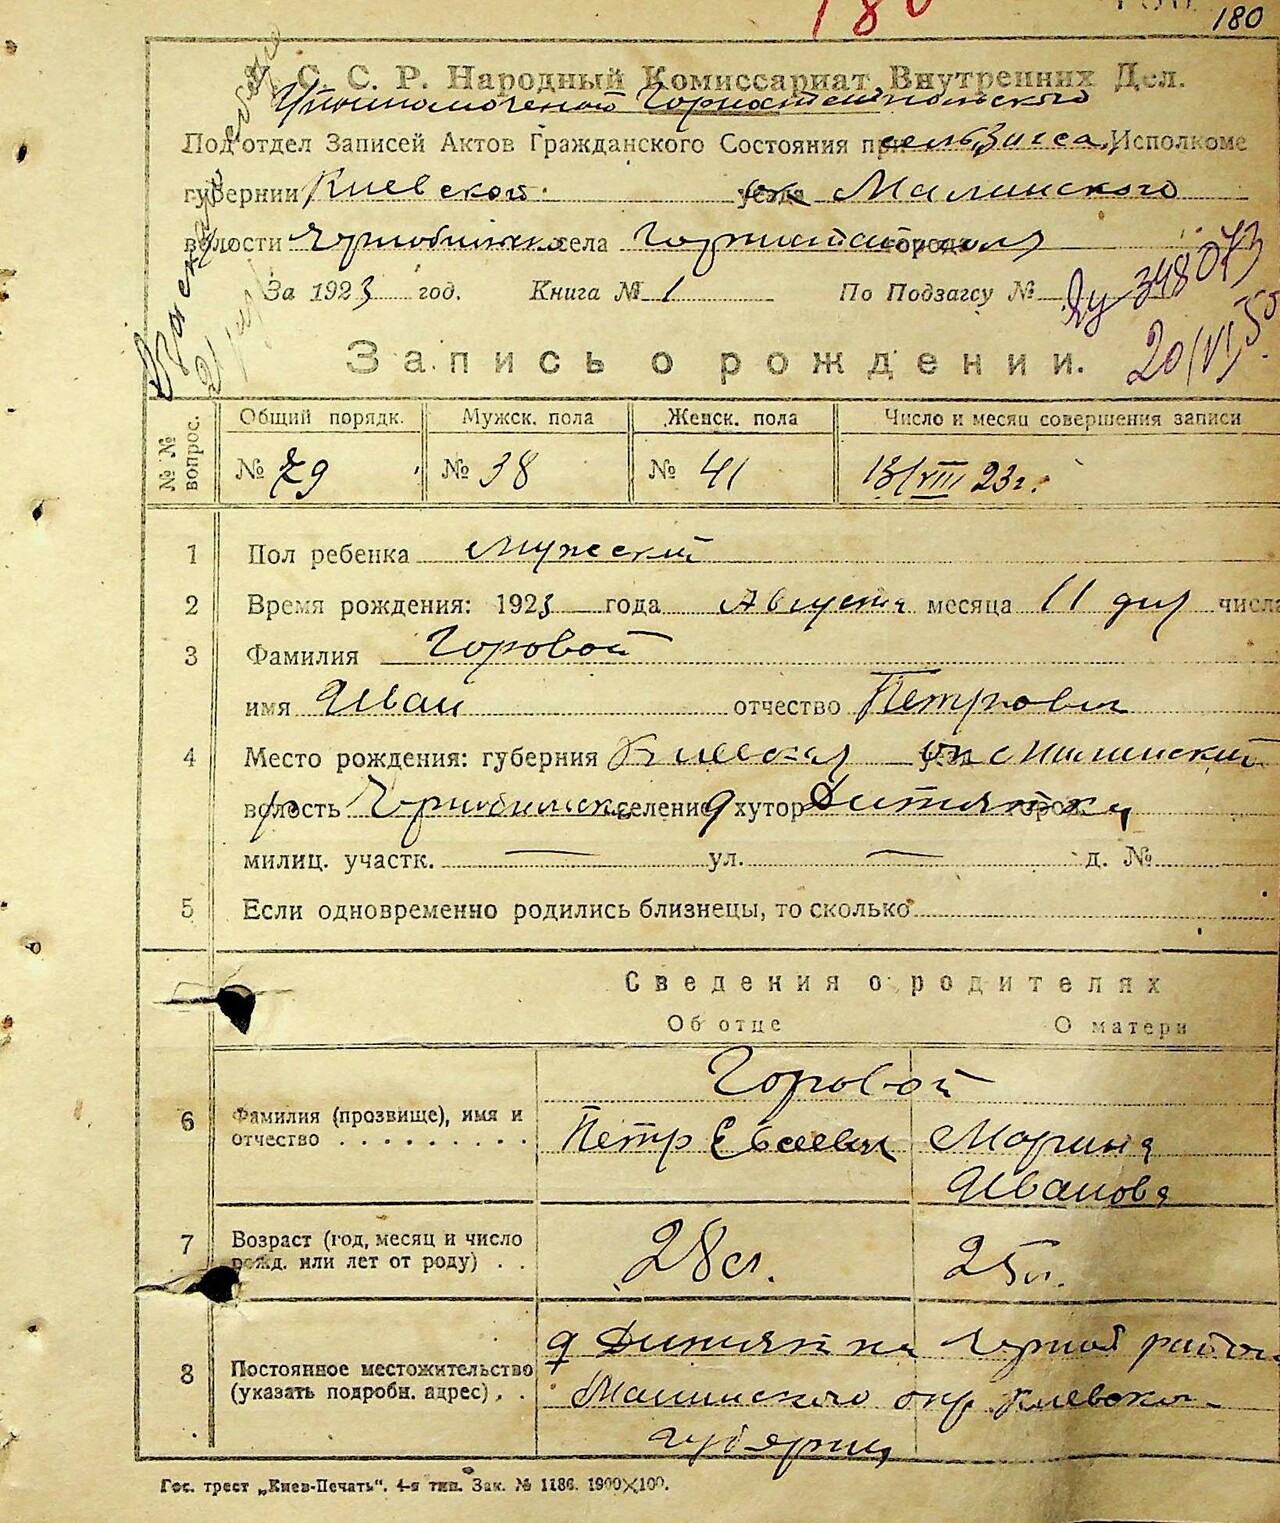 180
180
У. С. С. Р. Народный Комиссариат Внутренних Дел.
Горностайпольского
Под'отдел Записей Актов Гражданского Состояния при сельЗагса Исполкоме
губернии Киевской окр Малинского
волости Чернобильско села Горностайполя
За 1923 год. Книга № 1 По Подзагсу №
348073
20/VI 50
Запись о рождении.
№№ вопрос.
Общий порядк. Мужск. пола Женск. пола Число и месяц совершения записи
№ 79 № 38 № 41 13/VIII 23г.
1 Пол ребенка мужеский
2 Время рождения: 1923 года Августа месяца 11 дня числа
3 Фамилия Горовой
имя Иван отчество Петрович
4 Место рождения: губерния Киевская окр Малинский
волость Чернобильск селение д хутор Дитятки
милиц. участк. — ул. — д. №
5 Если одновременно родились близнецы, то сколько
Сведения о родителях
Об отце О матери
Горовой
6 Фамилия (прозвище), имя и
отчество . . . . . . . . . .
Петр Евсеевич Марина
Иванова
7 Возраст (год, месяц и число
рожд. или лет от роду) . .
28 л. 25 л.
8 Постоянное местожительство
(указать подробн. адрес) . .
д Дитятки Черноб район
Малинского окр Киевско-
губернии
Гос. трест „Киев-Печать". 4-я тип. Зак. № 1186. 1900×100.